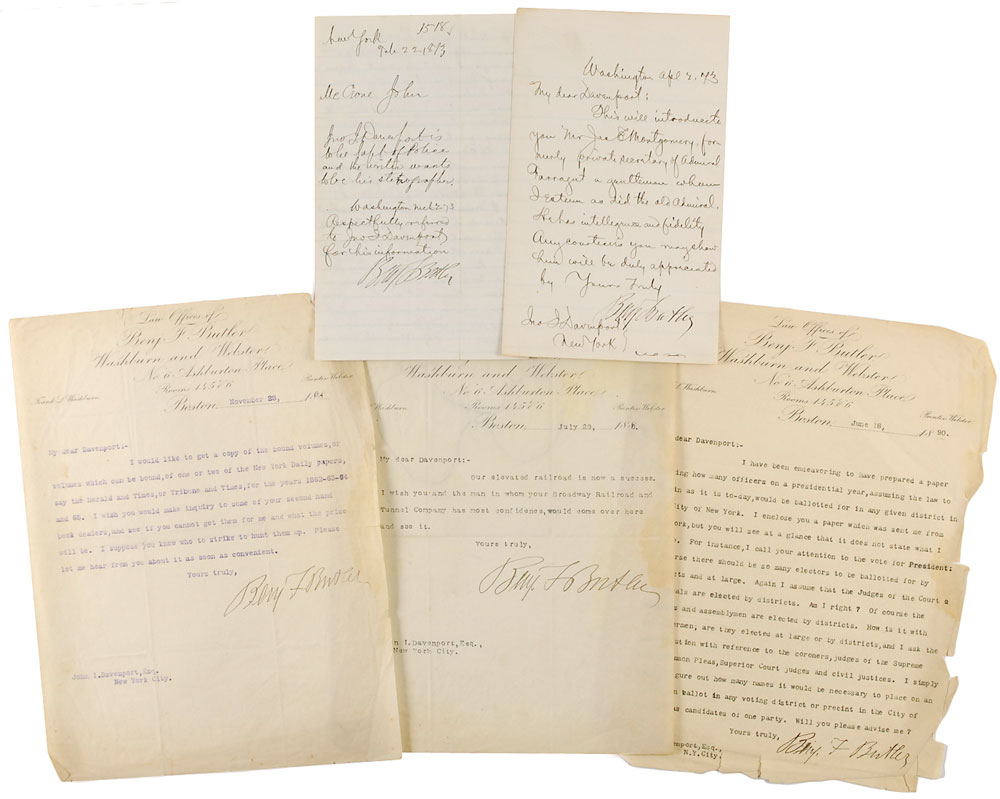 1518
New York
Feb 22 1873
McCrone John
Jno I Davenport is
to be Supt of Police
and the writer wants
to be his stenographer.
Washington Mch 2 73
Respectfully referred
to Jno I Davenport
for his information
Benj F Butler
Washington Apl 2, 73
My dear Davenport:
This will introduce
you Mr Jas E Montgomery, for-
merly private secretary of Admiral
Farragut a gentleman whom
I esteem as did the old Admiral.
He has intelligence and fidelity
Any courtesies you may show
him will be duly appreciated
by Yours truly
Benj F Butler
Jno I Davenport
New York
Law Offices of
Benj F Butler
Washburn and Webster
No 6 Ashburton Place
Rooms 1 4 5 & 6
Frank L. Washburn
Prentiss Webster
Boston November 28, 18
My dear Davenport:-
I would like to get a copy of the bound volumes, or
volumes which can be bound, of one or two of the New York Daily papers,
say the Herald and Times, or Tribune and Times, for the years 1862-63-64
and 65. I wish you would make inquiry to some of your second hand
book dealers, and see if you cannot get them for me and what the price
will be. I suppose you know who to strike to hunt them up. Please
let me hear from you about it as soon as convenient.
Yours truly,
Benj F Butler
John I. Davenport, Esq.
New York City.
Washburn and Webster
No 6 Ashburton Place
Rooms 1 4 5 & 6
Washburn
Prentiss Webster
Boston July 29, 18
My dear Davenport:-
Our elevated railroad is now a success.
I wish you and the man in whom your Broadway Railroad and
Tunnel Company has most confidence, would come over here
and see it.
Yours truly,
Benj. F Butler
n I. Davenport, Esq.,
New York City.
Law Offices of
Benj F Butler
Washburn and Webster
No 6 Ashburton Place
Rooms 1 4 5 & 6
Prentiss Webster
Boston June 18, 1890.
dear Davenport:-
I have been endeavoring to have prepared a paper
ing how many officers on a presidential year, assuming the law to
in as it is to-day, would be ballotted for in any given district in
City of New York. I enclose you a paper which was sent me from
ork, but you will see at a glance that it does not state what I
. For instance, I call your attention to the vote for President:
rse there should be so many electors to be ballotted for by
cts and at large. Again I assume that the Judges of the Court o
als are elected by districts. Am I right ? Of course the
s and assemblymen are elected by districts. How is it with
ermen, are they elected at large or by districts, and I ask the
stion with reference to the coroners, judges of the Supreme
mmon Pleas, Superior Court judges and civil justices. I simply
gure out how many names it would be necessary to place on an
n ballot in any voting district or precint in the City of
as candidates of one party. Will you please advise me ?
Yours truly,
Benj. F Butler
enport, Esq.,
N.Y. City.